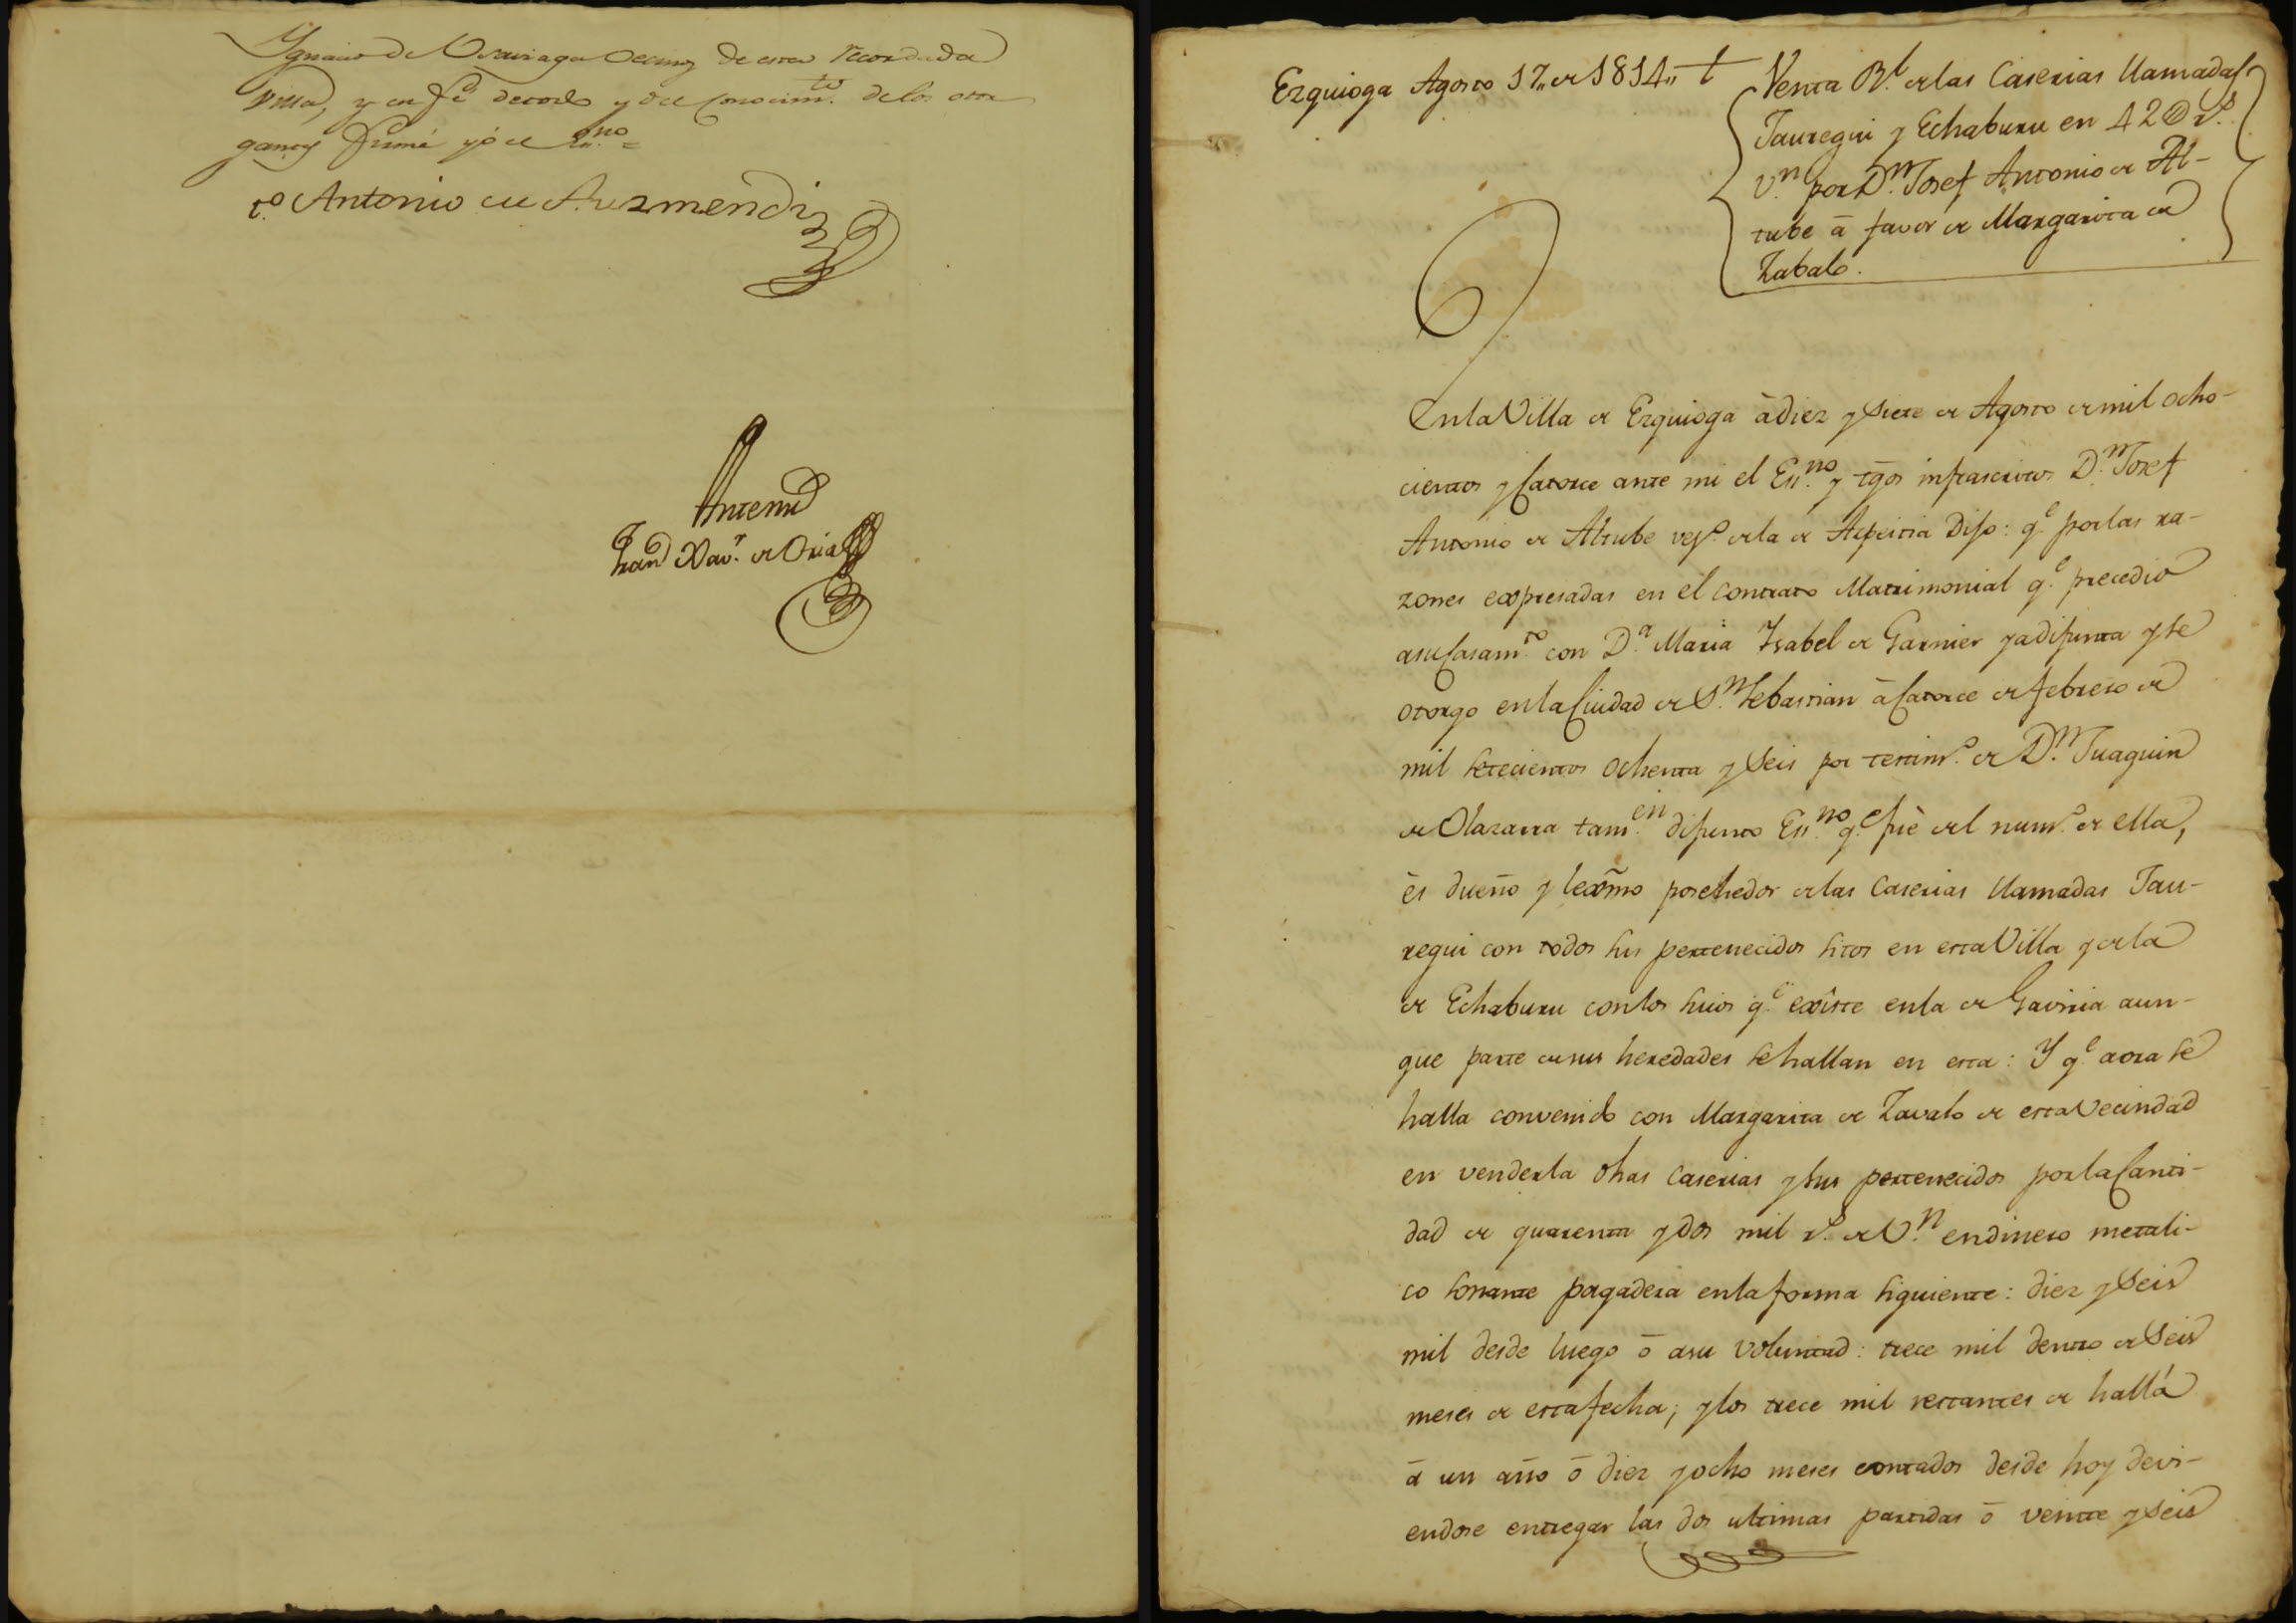 Ygnacio de Vsauiaga vecinos de esta recordada
Villa, y en feé de todo y del conocimto. de los otor
gantes firmé yo el Essno. =
to. Antonio de Aizmendi
Antemi
Franco Xavr. de Oria
Ezquioga Agosto 17,, de 1814,, t
Venta Rl. de las Caserias llamadas
Jauregui y Echaburu en 42@ rs.
Vn. por Dn. Josef Antonio de Al-
tube â favor de Margarita de
Zabalo.
En la Villa de Ezquioga â diez y Siete de Agosto de mil ocho-
cientos y Catorce ante mi el Essno. y tgos infrascritos Dn. Josef
Antonio de Altube veso. de la de Azpeitia Dijo: qe. por las ra-
zones expresadas en el contrato Matrimonial qe. precedio
a su Casamto. con Da. Maria Ysabel de Garnier ya difunta y se
otorgo en la Ciudad de Sn. Sebastian â Catorce de febrero de
mil setecientos ochenta y Seis por testimo. de Dn. Juaquin
de Olazarra tamen. difunto Essno. qe. fuè del numo. de ella,
ès dueño y lexmo posehedor de las Caserias llamadas Jau-
regui con todos sus pertenecidos sitos en esta Villa y de la
de Echaburu con los suios qe. exîste en la de Gaviria aun-
que parte de sus heredades se hallan en esta: Y qe. aora se
halla convenido con Margarita de Zavalo de esta Vecindad
en venderla dhas Caserias y sus pertenecidos por la Canti-
dad de quarenta y dos mil rs. de Vn. en dinero metali-
co sonante pagadera en la forma siguiente: diez y Seis
mil desde luego ô a su voluntad: trece mil dentro de Seis
meses de esta fecha; y los trece mil restantes de hallá
â un año ô diez y ocho meses contados desde hoy devi-
endose entregar las dos ultimas partidas ô veinte y Seis